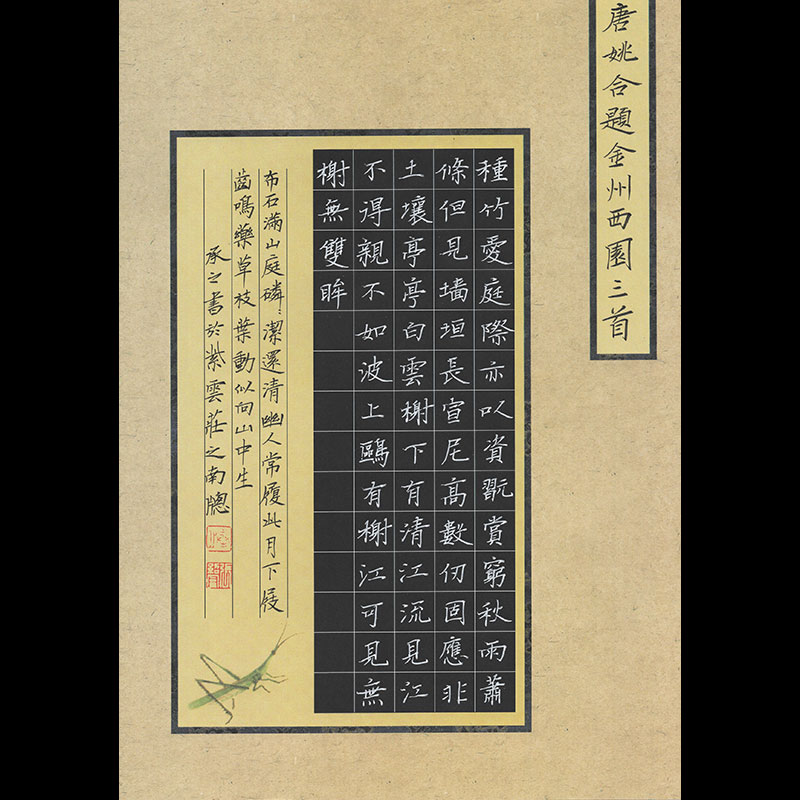 唐姚合題金州西園三首
種竹愛庭際亦以資翫賞窮秋雨蕭
條但見墙垣長宣尼高數仞固應非
土壤亭亭白雲榭下有清江流見江
不得親不如波上鷗有榭江可見無
榭無雙眸
布石滿山庭磷〻潔還清幽人常履此月下屐
齒鳴藥草枝葉動似向山中生
承之書於紫雲莊之南牕